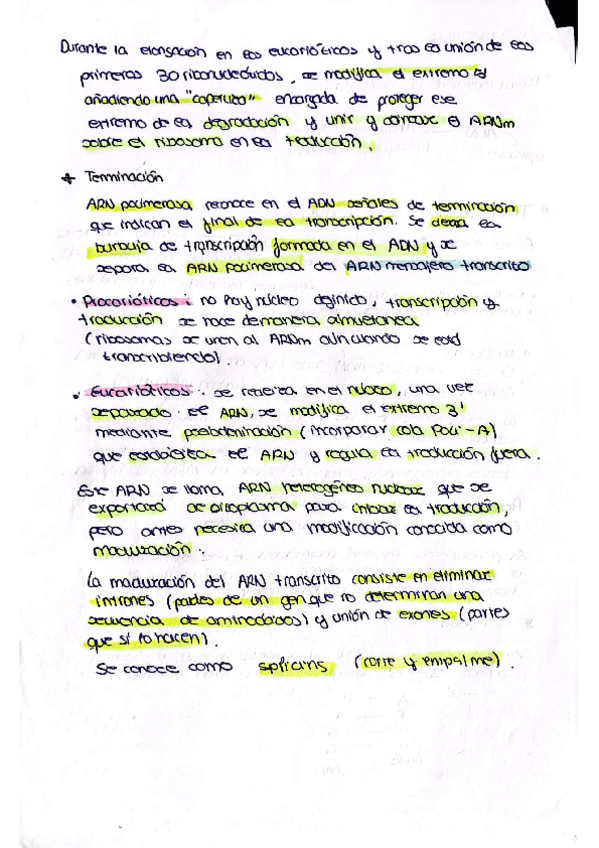 Durante la elongación en los eucarióticos y tras la unión de los
primeros 30 ribonucleótidos, se modifica el extremo 5'
añadiendo una "caperuza" encargada de proteger ese
extremo de la degradación y unir y colocar el ARNm
sobre el ribosoma en la traducción.
* Terminación
ARN polimerasa reconoce en el ADN señales de terminación
que indican el final de la transcripción. Se cierra la
burbuja de transcripción formada en el ADN y se
separa la ARN polimerasa del ARN mensajero transcrito
• Procarióticos: no hay núcleo definido, transcripción y
traducción se hace de manera simultanea
(ribosomas se unen al ARNm aún cuando se está
transcribiendo).
• Eucarióticos: se realiza en el núcleo, una vez
separado el ARN, se modifica el extremo 3'
mediante poliadeninación (incorporar cola Poli-A)
que estabiliza el ARN y regula la traducción fuera.
Este ARN se llama, ARN heterogéneo nuclear que se
exportará al citoplasma para iniciar la traducción,
pero antes necesita una modificación conocida como
maduración.
La maduración del ARN transcrito consiste en eliminar
intrones (partes de un gen que no determinan una
secuencia de aminoácidos) y unión de exones (partes
que sí lo hacen).
Se conoce como splicing (corte y empalme).